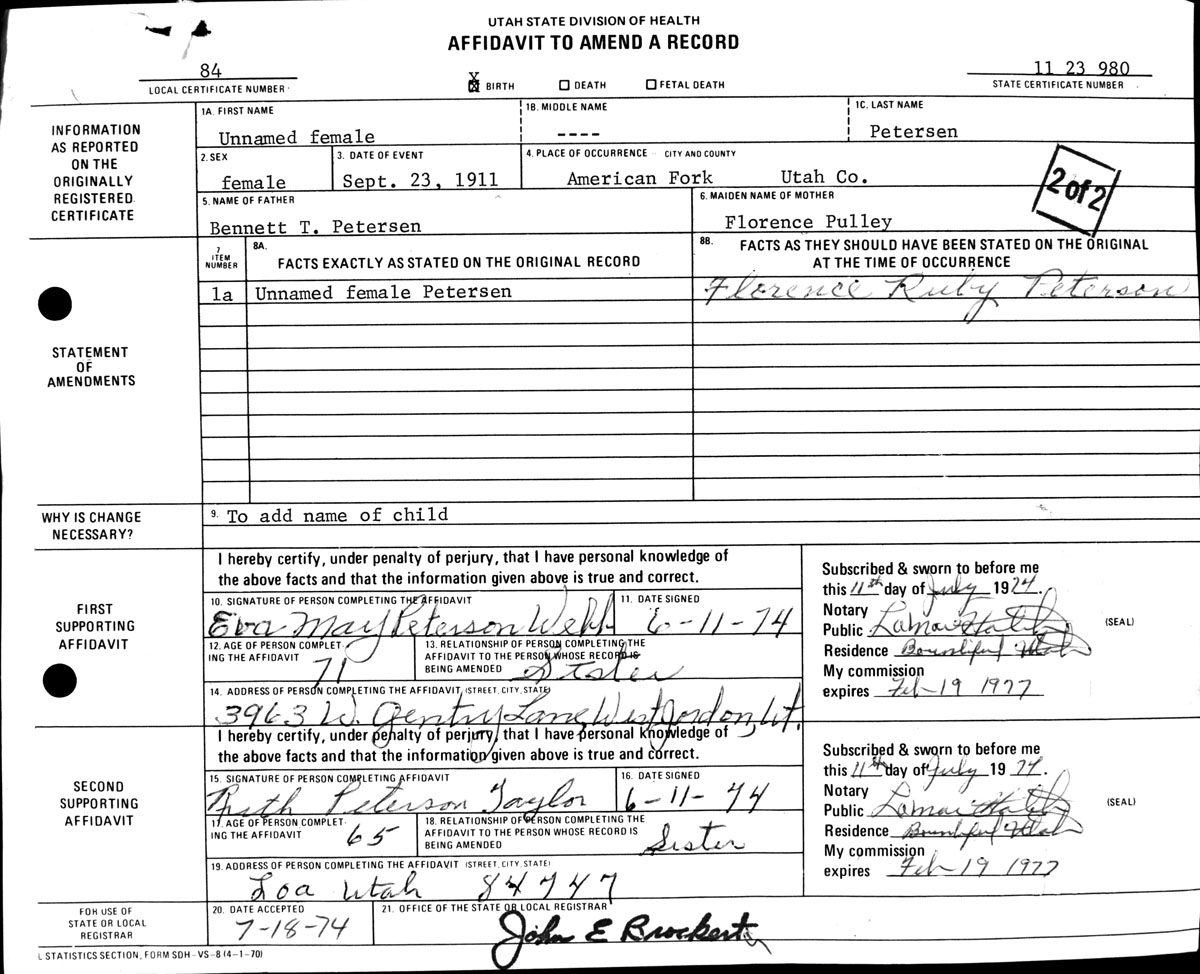 UTAH STATE DIVISION OF HEALTH
AFFIDAVIT TO AMEND A RECORD
84
LOCAL CERTIFICATE NUMBER
X BIRTH
DEATH
FETAL DEATH
11 23 980
STATE CERTIFICATE NUMBER
INFORMATION
AS REPORTED
ON THE
ORIGINALLY
REGISTERED
CERTIFICATE
1A. FIRST NAME
Unnamed female
1B. MIDDLE NAME
----
1C. LAST NAME
Petersen
2. SEX
female
3. DATE OF EVENT
Sept. 23, 1911
4. PLACE OF OCCURRENCE CITY AND COUNTY
American Fork Utah Co.
2 of 2
5. NAME OF FATHER
Bennett T. Petersen
6. MAIDEN NAME OF MOTHER
Florence Pulley
STATEMENT
OF
AMENDMENTS
7
ITEM
NUMBER
8A.
FACTS EXACTLY AS STATED ON THE ORIGINAL RECORD
8B. FACTS AS THEY SHOULD HAVE BEEN STATED ON THE ORIGINAL
AT THE TIME OF OCCURRENCE
1a
Unnamed female Petersen
Florence Ruby Peterson
WHY IS CHANGE
NECESSARY?
9. To add name of child
FIRST
SUPPORTING
AFFIDAVIT
I hereby certify, under penalty of perjury, that I have personal knowledge of
the above facts and that the information given above is true and correct.
10. SIGNATURE OF PERSON COMPLETING THE AFFIDAVIT
Eva May Peterson Webb
11. DATE SIGNED
6-11-74
12. AGE OF PERSON COMPLET-
ING THE AFFIDAVIT
71
13. RELATIONSHIP OF PERSON COMPLETING THE
AFFIDAVIT TO THE PERSON WHOSE RECORD IS
BEING AMENDED
Sister
14. ADDRESS OF PERSON COMPLETING THE AFFIDAVIT (STREET, CITY, STATE)
3963 W. Gentry Lane, West Jordon, Ut.
Subscribed & sworn to before me
this 11th day of July 1974.
Notary
Public Lamar
Residence Bountiful Utah
My commission
expires Feb 19 1977
(SEAL)
SECOND
SUPPORTING
AFFIDAVIT
I hereby certify, under penalty of perjury, that I have personal knowledge of
the above facts and that the information given above is true and correct.
15. SIGNATURE OF PERSON COMPLETING AFFIDAVIT
Ruth Peterson Taylor
16. DATE SIGNED
6-11-74
17. AGE OF PERSON COMPLET-
ING THE AFFIDAVIT
65
18. RELATIONSHIP OF PERSON COMPLETING THE
AFFIDAVIT TO THE PERSON WHOSE RECORD IS
BEING AMENDED
Sister
19. ADDRESS OF PERSON COMPLETING THE AFFIDAVIT (STREET, CITY, STATE)
Loa Utah 84747
Subscribed & sworn to before me
this 11th day of July 1974.
Notary
Public Lamar
Residence Bountiful Utah
My commission
expires Feb 19 1977
(SEAL)
FOR USE OF
STATE OR LOCAL
REGISTRAR
20. DATE ACCEPTED
7-18-74
21. OFFICE OF THE STATE OR LOCAL REGISTRAR
John E Brockert
L STATISTICS SECTION, FORM SDH-VS-8 (4-1-70)